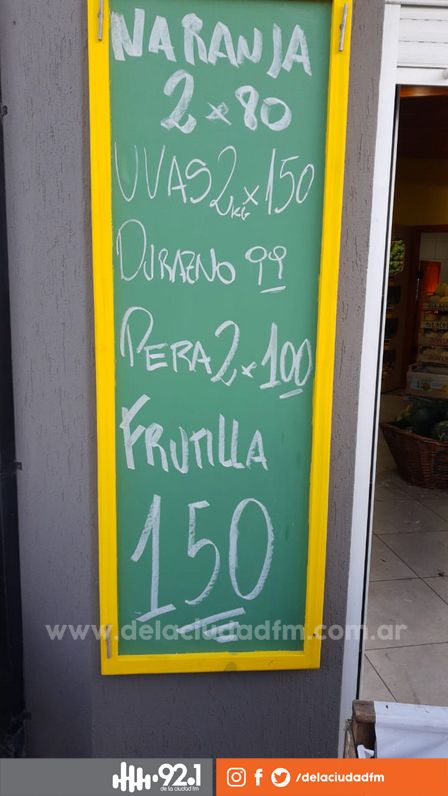 NARANJA
2x80
UVAS 2KG x 150
DURAZNO 99
PERA 2x100
FRUTILLA
150
www.delaciudadfm.com.ar
92.1
de la ciudad fm
/delaciudadfm